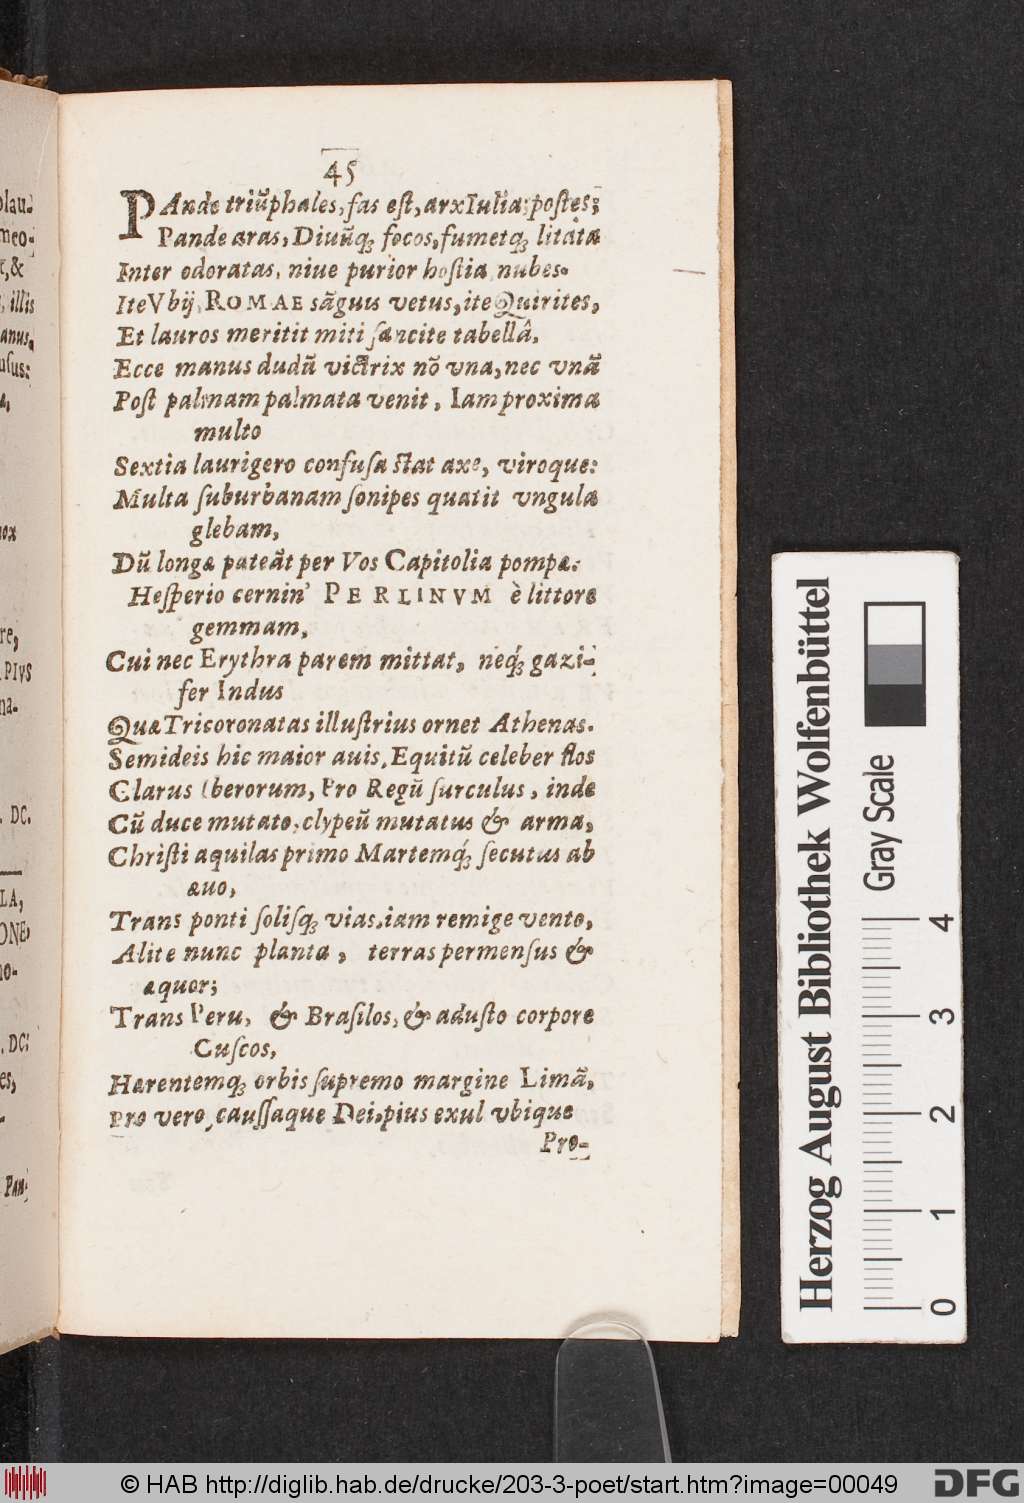 45
PAnde triũphales, fas est, arx Iulia; postes;
Pande aras, Diuũq; focos, fumetq; litata
Inter odoratas, niue purior hostia nubes.
Ite Vbij, ROMAE sãguis vetus, ite Quirites,
Et lauros meritit miti sancite tabellâ.
Ecce manus dudũ victrix nõ vna, nec vnã
Post palmam palmata venit, Iam proxima
multo
Sextia laurigero confusa stat axe, viroque:
Multa suburbanam sonipes quatit vngula
glebam,
Dũ longæ pateãt per Vos Capitolia pompæ:
Hesperio cernin' PERLINVM è littore
gemmam,
Cui nec Erythra parem mittat, neq; gazi-
fer Indus
Quæ Tricoronatas illustrius ornet Athenas.
Semideis hic maior auis, Equitũ celeber flos
Clarus Iberorum, Pro Regũ surculus, inde
Cũ duce mutato, clypeũ mutatus & arma,
Christi aquilas primo Martemq; secutus ab
æuo,
Trans ponti solisq; vias, iam remige vento,
Alite nunc planta, terras permensus &
æquor;
Trans Peru, & Brasilos, & adusto corpore
Cuscos,
Hærentemq; orbis supremo margine Limã,
Pro vero, caussaque Dei, pius exul vbique
Pro-
plau-
meo-
illis
manus,
usus:
nox
PIVS
na-
. DC.
LA,
ONE,
no-
. DC.
es,
Pan-
Herzog August Bibliothek Wolfenbüttel
Gray Scale
0 1 2 3 4
© HAB http://diglib.hab.de/drucke/203-3-poet/start.htm?image=00049
DFG